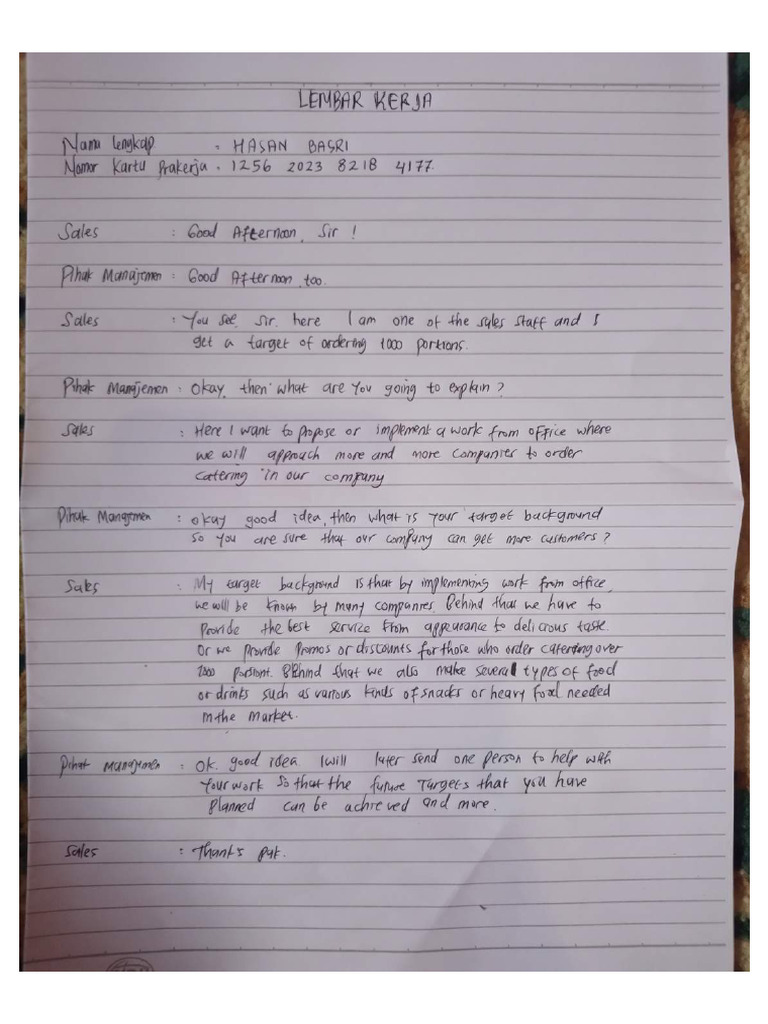 LEMBAR KERJA
Nama lengkap : HASAN BASRI
Nomor Kartu Prakerja : 1256 2023 8218 4177
Sales : Good Afternoon, Sir !
Pihak Manajemen : Good Afternoon, too.
Sales : You see, Sir. here I am one of the sales staff and I
get a target of ordering 1000 portions.
Pihak Manajemen : Okay, then what are you going to explain?
Sales : Here I want to propose or implement a work from office where
we will approach more and more companies to order
catering in our company
Pihak Manajemen : okay good idea, then what is your target background
so you are sure that our company can get more customers?
Sales : My target background is that by implementing work from office,
we will be known by many companies. Behind that we have to
provide the best service from appearance to delicious taste.
Or we provide promos or discounts for those who order catering over
1000 portions. Behind that we also make several types of food
or drinks such as various kinds of snacks or heavy food needed
in the market.
Pihak Manajemen : Ok. good idea I will later send one person to help with
your work so that the future targets that you have
planned can be achieved and more.
Sales : Thanks pak.